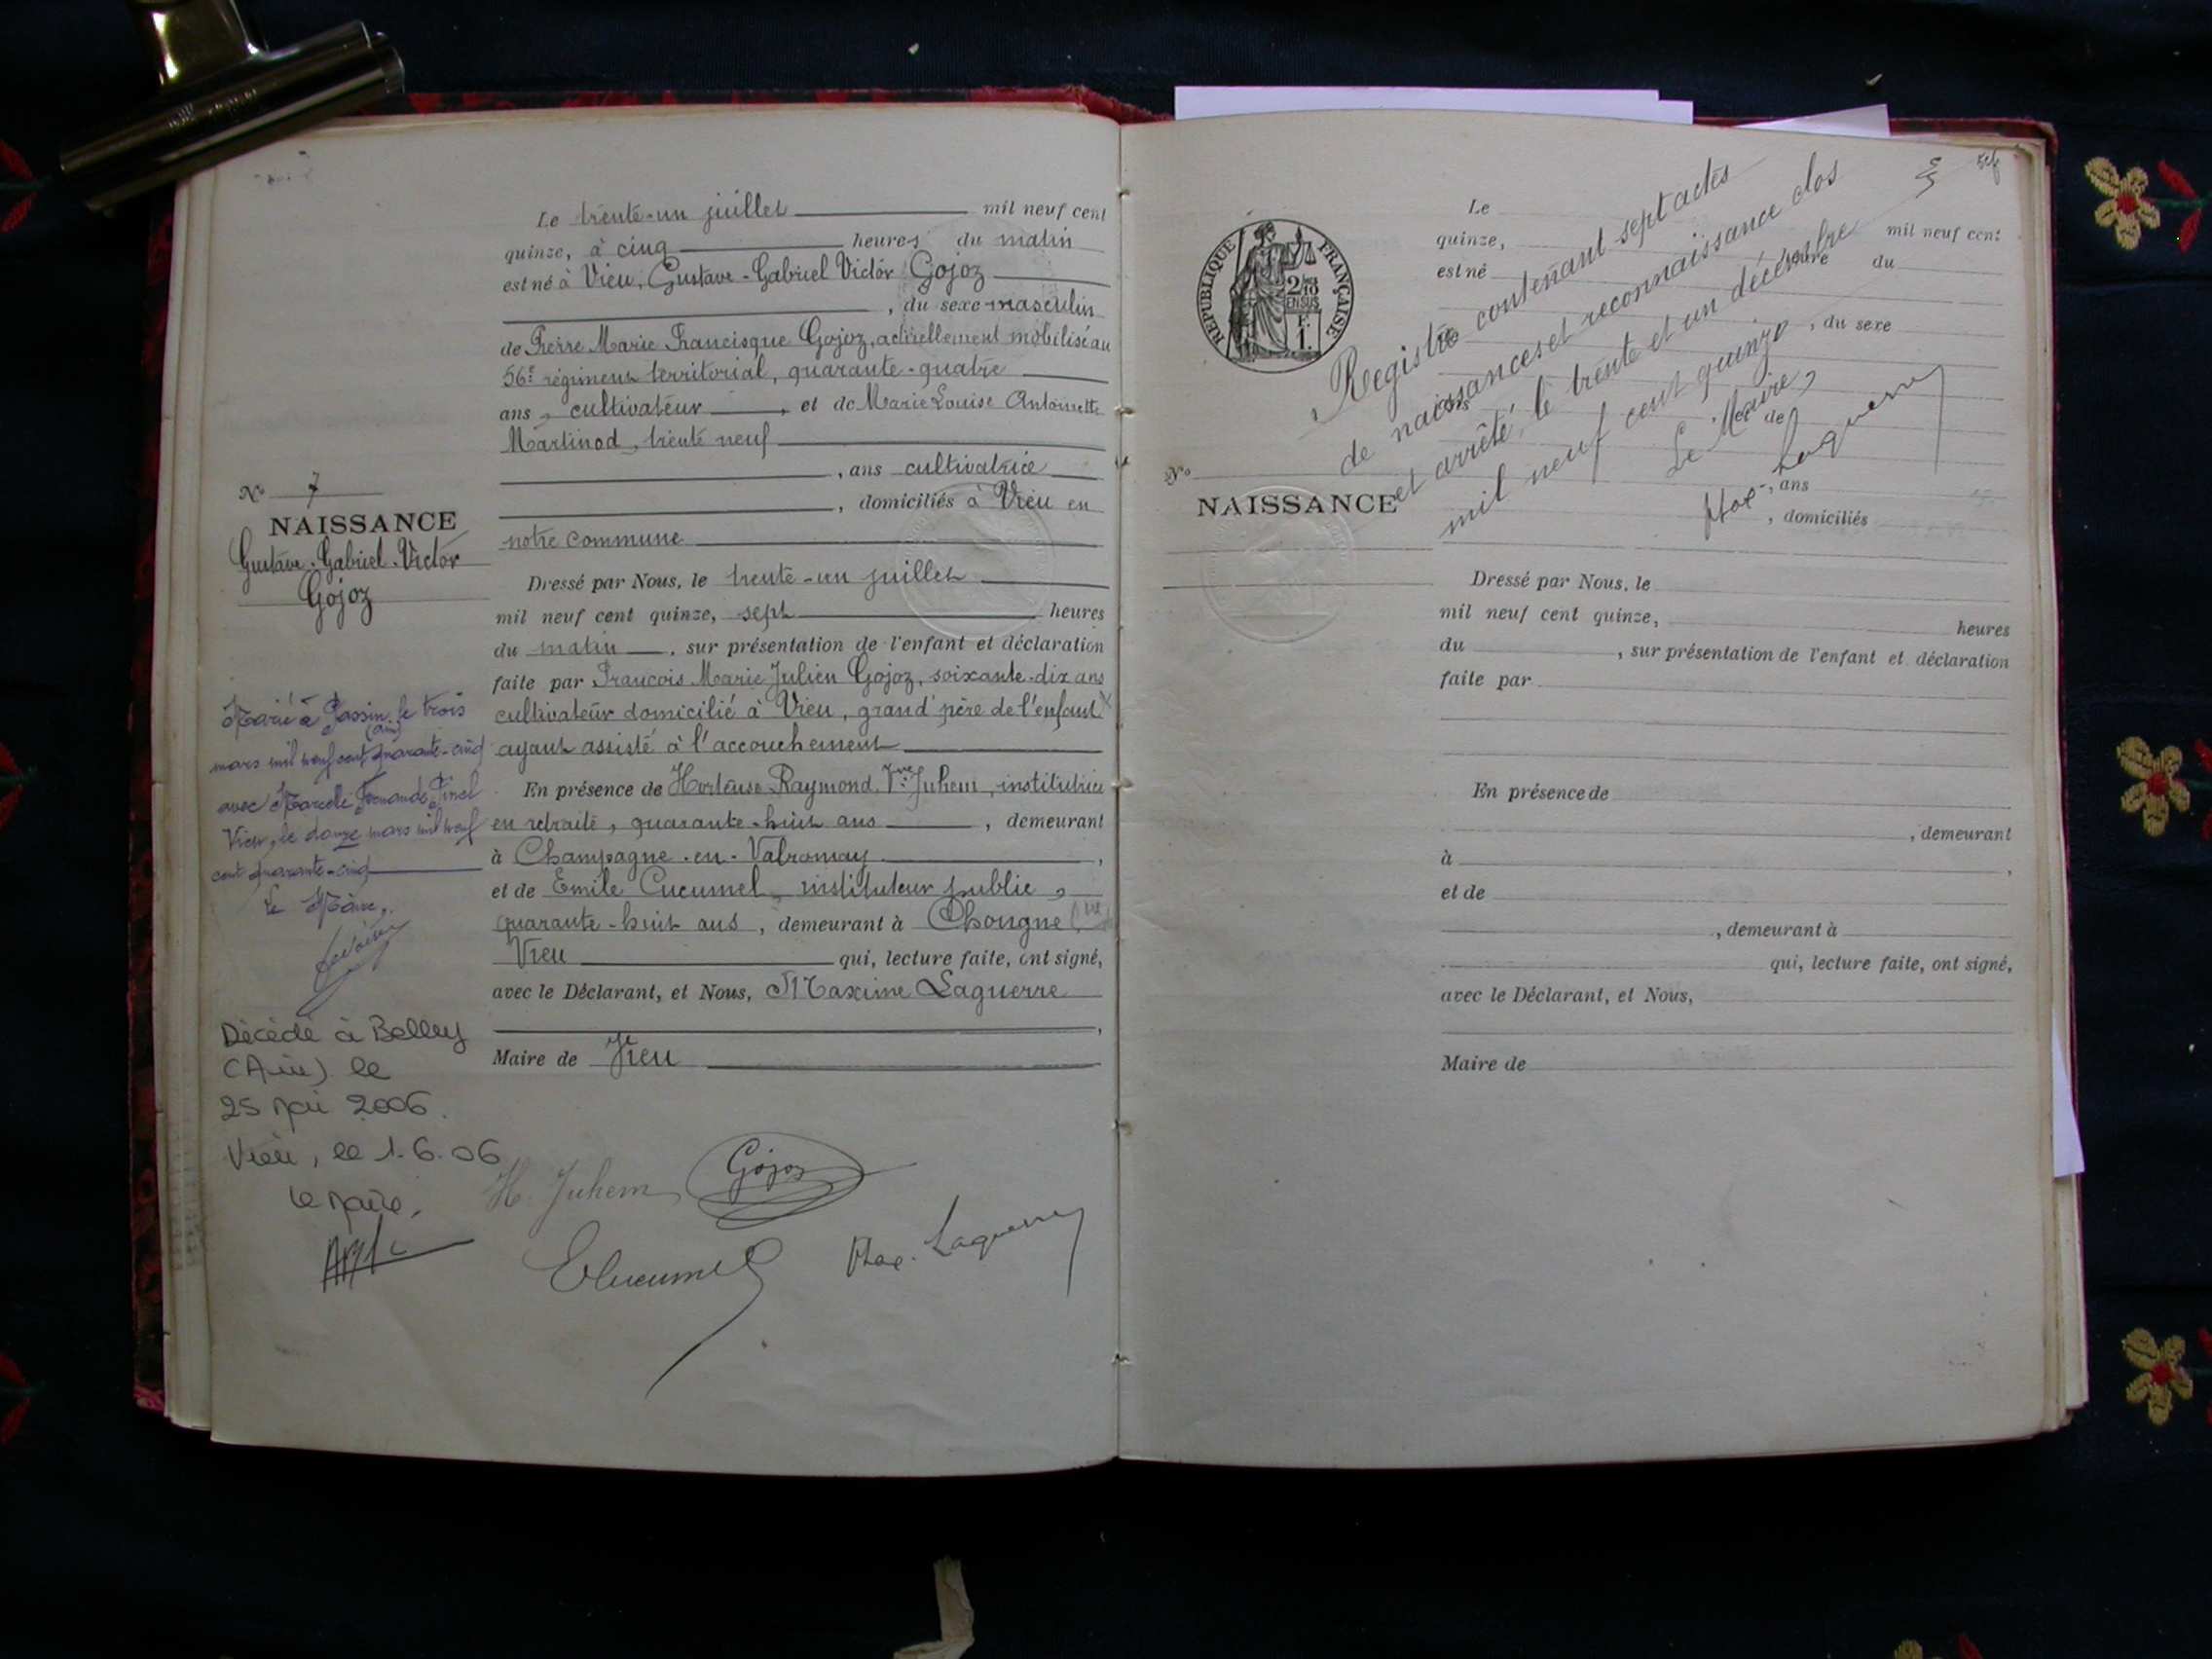 Le trente-un juillet mil neuf cent
quinze, à cinq heures du matin
est né à Vieu, Gustave-Gabriel Victor Gojoz
, du sexe masculin
de Pierre Marie Francisque Gojoz, actuellement mobilisé au
56e régiment territorial, quarante-quatre
ans, cultivateur, et de Marie Louise Antoinette
Martinod, trente neuf
, ans cultivatrice
, domiciliés à Vieu en
notre commune
Dressé par Nous, le trente-un juillet
mil neuf cent quinze, sept heures
du matin, sur présentation de l'enfant et déclaration
faite par François Marie Julien Gojoz, soixante-dix ans
cultivateur domicilié à Vieu, grand père de l'enfant
ayant assisté à l'accouchement
En présence de Hortense Raymond, Vve Juhem, institutrice
en retraite, quarante-huit ans, demeurant
à Champagne-en-Valromay,
et de Emile Cucumel, instituteur public,
quarante-huit ans, demeurant à Chongne
Vieu qui, lecture faite, ont signé,
avec le Déclarant, et Nous, Maxime Laguerre
,
Maire de Vieu
H. Juhem
Gojoz
ECucumel
Max. Laguerre
No 7
NAISSANCE
Gustave-Gabriel-Victor
Gojoz
Marié à Passin le trois
(Ain)
mars mil neuf cent quarante-cinq
avec Marcelle Fernande Pinel
Vieu, le douze mars mil neuf
cent quarante-cinq
Le Maire,
Décédé à Belley
(Ain) le
25 Mai 2006.
Vieu, le 1.6.06
Le Maire,
RÉPUBLIQUE FRANÇAISE
2/10
EN SUS
F.
1.
Registre contenant sept actes
de naissances et reconnaissance clos
et arrêté, le trente et un décembre
mil neuf cent quinze
Le Maire,
Max. Laguerre
No
NAISSANCE
Le mil neuf cent
quinze, heure du
est né
, du sexe
de
ans et de
, ans
, domiciliés
Dressé par Nous, le
mil neuf cent quinze, heures
du , sur présentation de l'enfant et déclaration
faite par
En présence de
, demeurant
à ,
et de
, demeurant à
qui, lecture faite, ont signé,
avec le Déclarant, et Nous,
,
Maire de